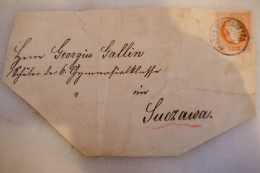 Herrn Georgiu Gallin
Schüler der 6. Gymnasialklasse
in
Suczawa.